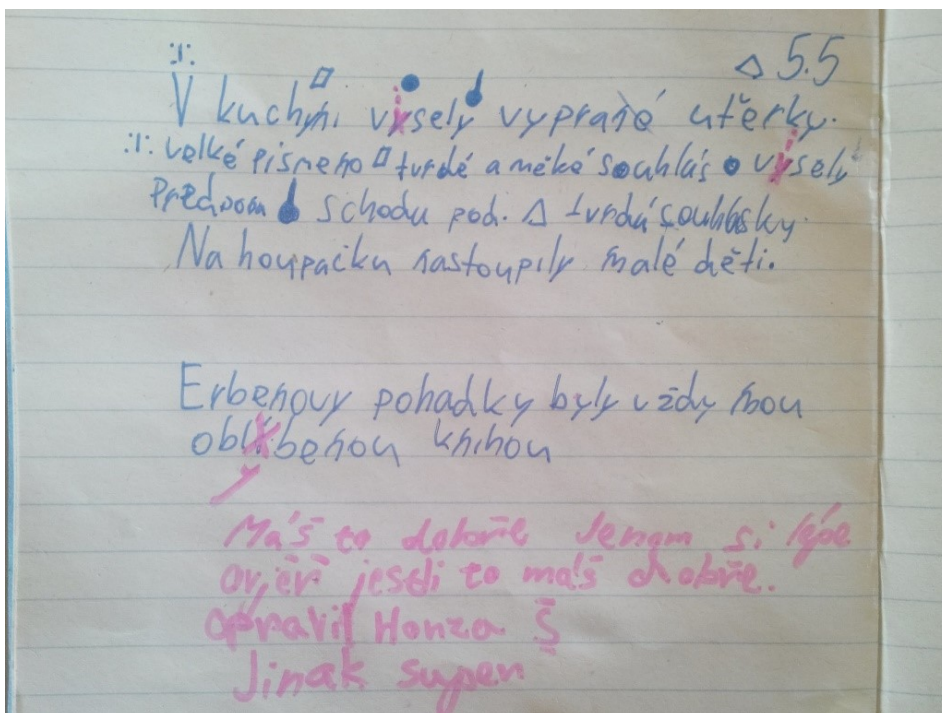 5.5
V kuchyni vysely vyprané utěrky.
velké písmeno tvrdé a měké souhlás vysely
Předvom schodu pod. tvrdá souhlásky.
Na houpačku nastoupily malé děti.
Erbenovy pohadky byly vždy mou
oblíbenou knihou
y
Máš to dobře Jenom si lépe
ověři jestli to máš dobře.
opravil Honza Š
Jinak super